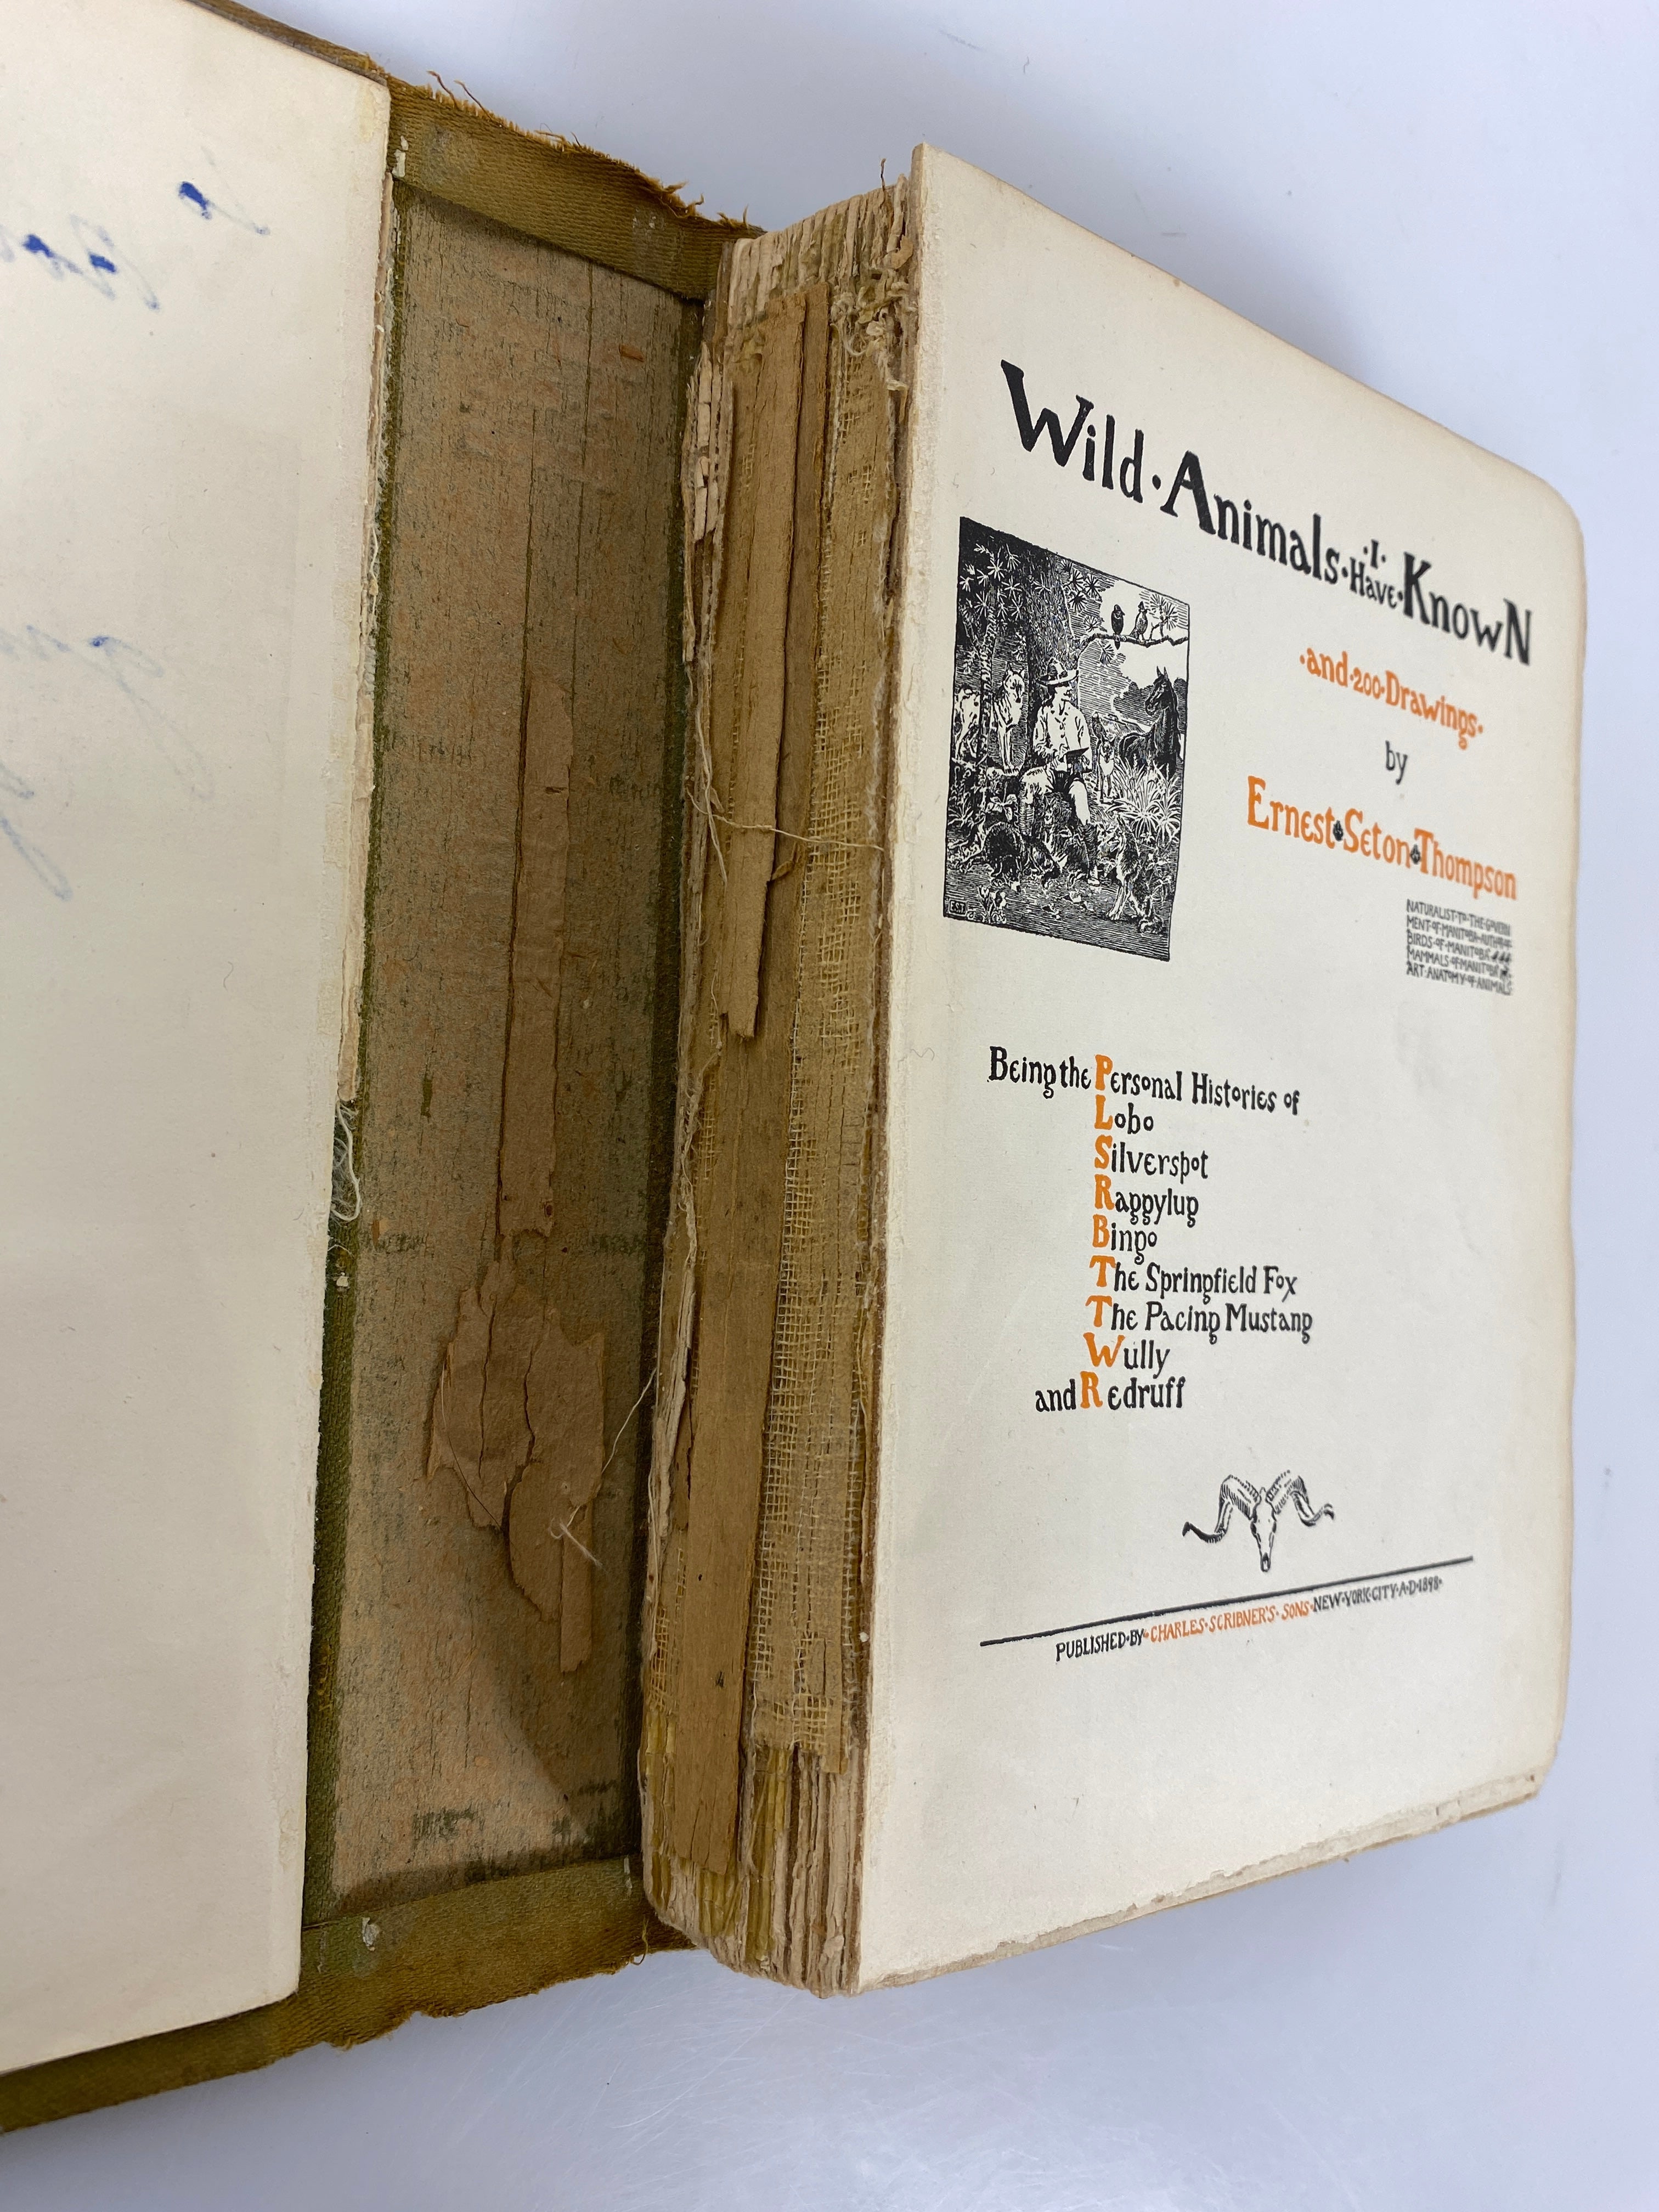 Wild·Animals·I·Have·Known
·and·200·Drawings·
by
Ernest·Seton·Thompson
NATURALIST·TO·THE·GOVERN
MENT·OF·MANITOBA·AUTHOR·OF
BIRDS·OF·MANITOBA
MAMMALS·OF·MANITOBA
ART·ANATOMY·OF·ANIMALS
Being the Personal Histories of
Lobo
Silverspot
Raggylug
Bingo
The Springfield Fox
The Pacing Mustang
Wully
and Redruff
PUBLISHED·BY·CHARLES·SCRIBNER'S·SONS·NEW·YORK·CITY·A·D·1898·